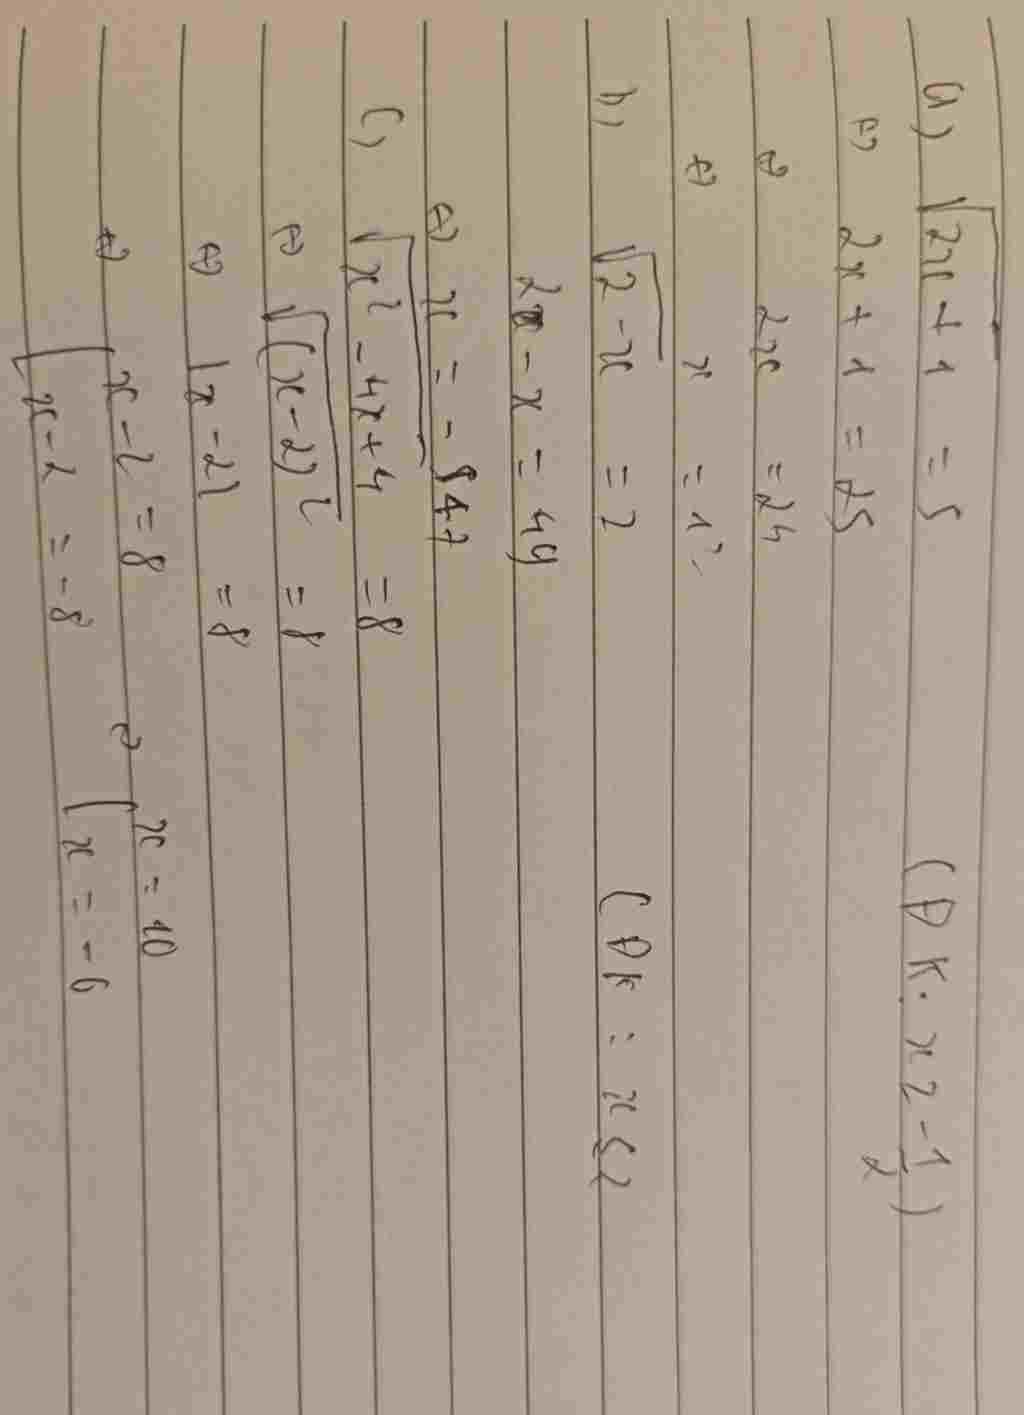 a) √(2x+1) = 5 (ĐK: x ≥ -1/2)
⇔ 2x + 1 = 25
⇔ 2x = 24
⇔ x = 12
b) √(2-x) = 7 (ĐK: x ≤ 2
2 - x = 49
⇔ x = -47
c) √(x² - 4x + 4) = 8
⇔ √(x-2)² = 8
⇔ |x-2| = 8
⇔ [ x-2 = 8 ⇔ [ x = 10
x-2 = -8 x = -6